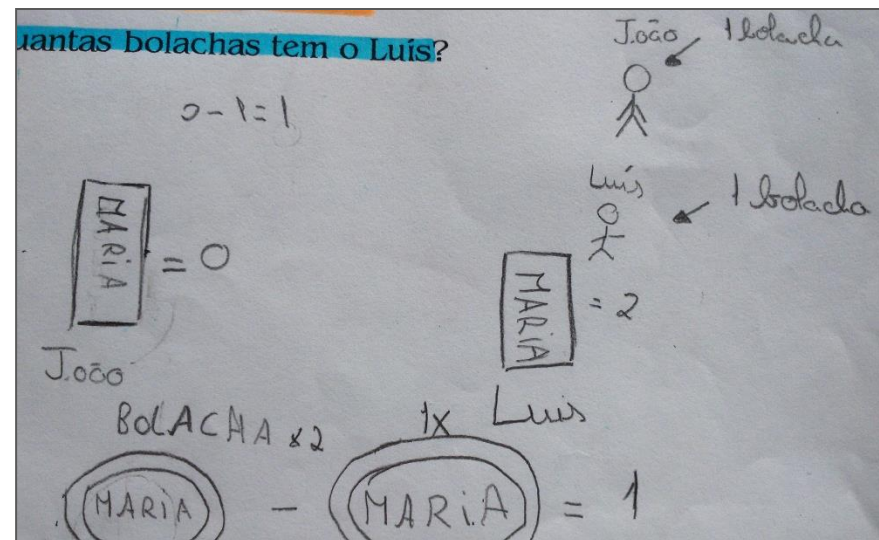 uantas bolachas tem o Luís?
João
1 bolacha
0-1=1
Luís
1 bolacha
MARIA
= 0
MARIA
= 2
João
Luis
BOLACHA x2
1x
MARIA - MARIA = 1